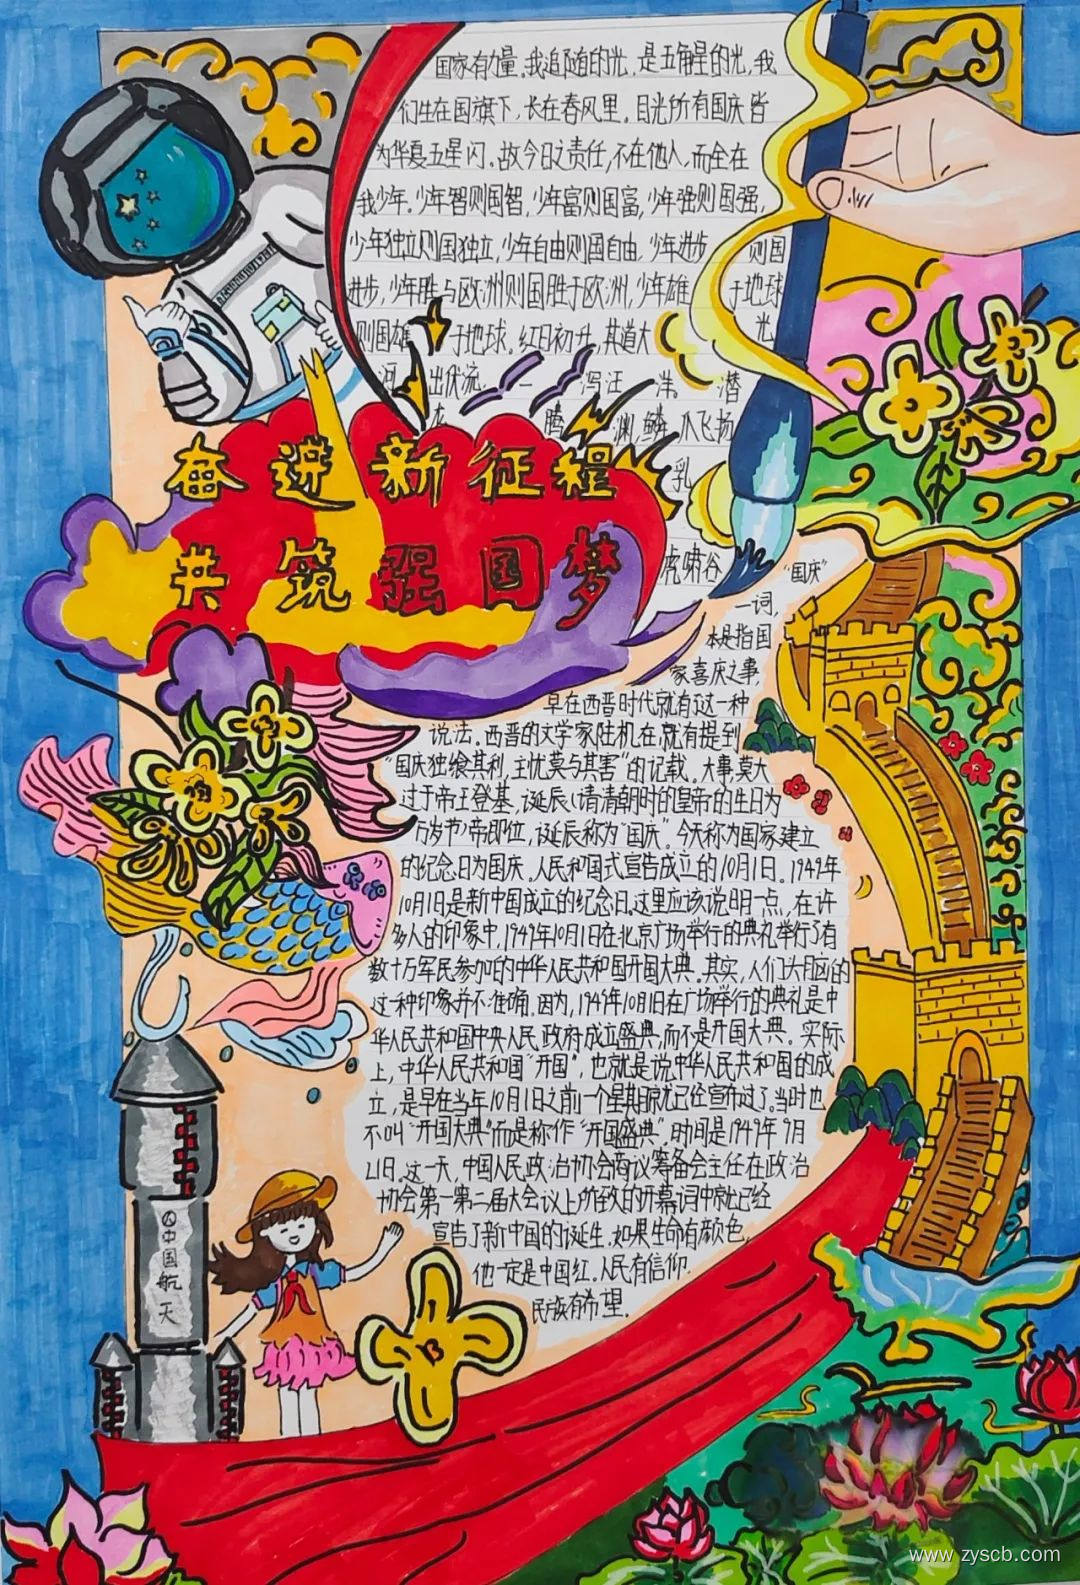 国家有力量,我追随的光,是五角星的光,我
们生在国旗下,长在春风里。目光所有国庆皆
为华夏五星闪。故今日之责任,不在他人,而全在
我少年。少年智则国智,少年富则国富,少年强则国强,
少年独立则国独立,少年自由则国自由,少年进步 则国
进步,少年胜与欧洲则国胜于欧洲,少年雄 于地球
则国雄 于地球。红日初升,其道大 光
河 出伏流 一 泻汪 洋。 潜
龙 腾 渊,鳞 爪飞扬
乳
虎啸谷
奋进新征程
共筑强国梦
"国庆"
一词,
本是指国
家喜庆之事,
早在西晋时代就有这一种
说法。西晋的文学家陆机在,就有提到
"国庆独飨其利,主忧莫与其害"的记载。大事,莫大
过于帝王登基,诞辰(清清朝时的皇帝的生日为
万岁节)帝即位,诞辰称为"国庆"。今天称为国家建立
的纪念日为国庆。人民和国式宣告成立的10月1日。1949年
10月1日是新中国成立的纪念日。这里应该说明一点,在许
多人的印象中,1949年10月1日在北京广场举行的典礼举行了有
数十万军民参加的中华人民共和国开国大典。其实,人们头月脑的
这一种印象并不准确。因为,1949年10月1日在广场举行的典礼是中
华人民共和国中央人民政府成立盛典,而不是开国大典。实际
上,中华人民共和国"开国",也就是说中华人民共和国的成
立,是早在当年10月1日之前一个星期就已经宣布过了。当时也
不叫"开国大典"而是称作"开国盛典"。时间是1949年9月
21日。这一天,中国人民政治协会商议筹备会主任在政治
协会第一第二届大会议上所致的开幕词中就已经
宣告了新中国的诞生。如果生命有颜色,
他一定是中国红。人民有信仰.
民族有希望.
中国航天
www.zyscb.com